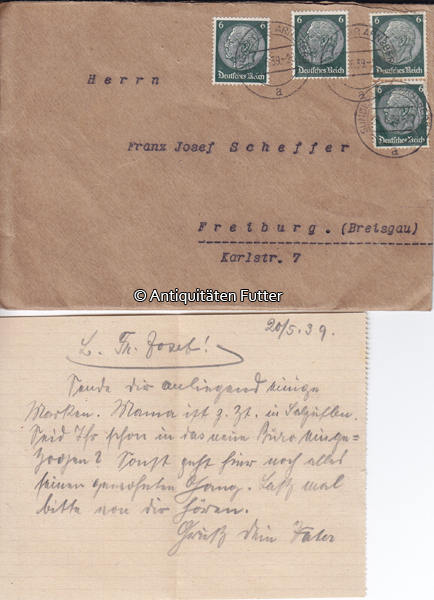 6 6 6
Deutsches Reich Deutsches Reich Deutsches Reich
6
Deutsches Reich
Herrn
Franz Josef Scheffer
Freiburg. (Breisgau)
Karlstr. 7
© Antiquitäten Futter
20/5.39.
L. Fr. Josef!
Sende dir anliegend einige
Marken. Mama ist z. Zt. in Salzuflen.
Seid Ihr schon in das neue Büro einge=
zogen? Sonst geht hier noch alles
seinen gewohnten Gang. Laß mal
bitte von dir hören.
Gruß Dein Vater